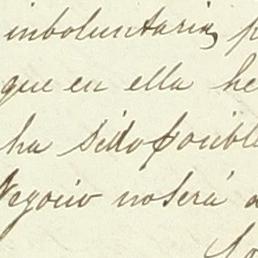 inboluntaria, p
que en ella he
ha sido posible
Negocio no será a